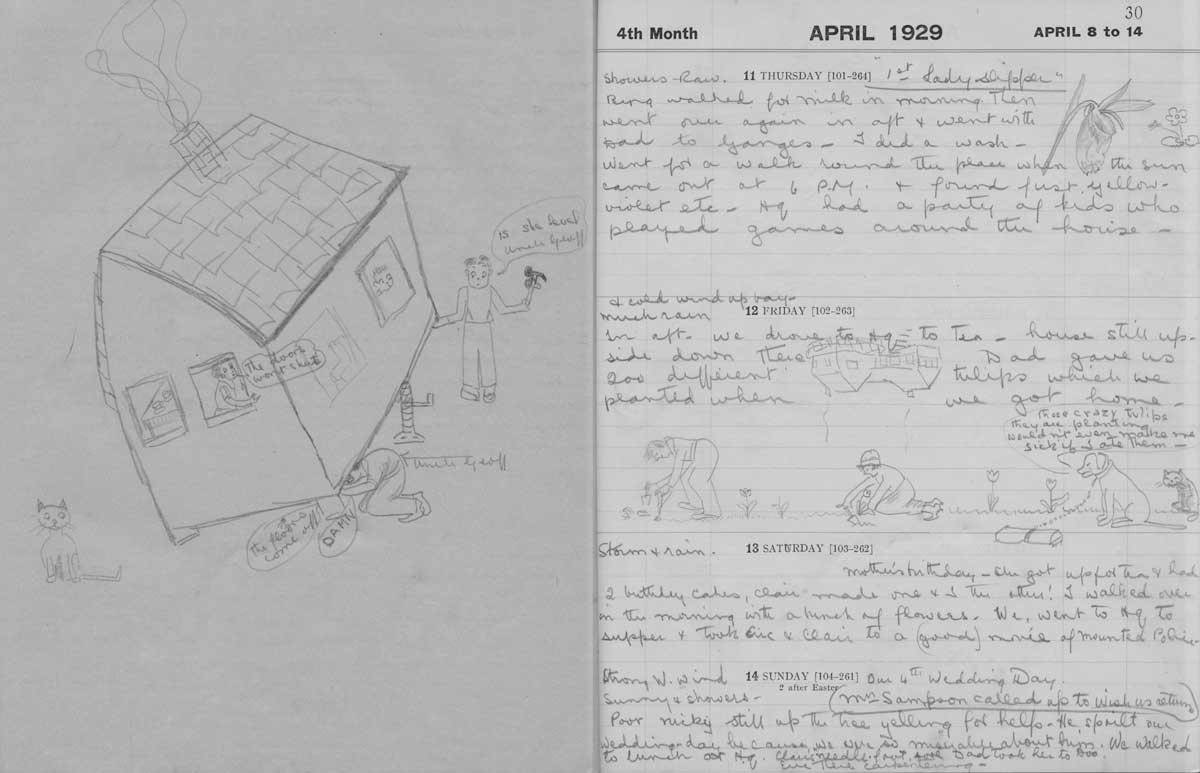 is she level
Uncle Geoff
The doors
wont shut
Uncle Geoff
The floors
come off!
DAMN
30
4th Month
APRIL 1929
APRIL 8 to 14
Showers - Raw.
11 THURSDAY [101-264]
"1st Lady Slipper"
Ring walked for milk in morning then
went over again in aft & went with
Dad to Ganges - I did a wash -
went for a walk round the place when the sun
came out at 6 P.M. & found first yellow-
violet etc - Hq had a party of kids who
played games around the house -
& cold wind up bay -
much rain
12 FRIDAY [102-263]
In aft. we drove to Hq to Tea - house still up-
side down there Dad gave us
200 different tulips which we
planted when we got home -
Those crazy tulips
they are planting
wouldn't even make me
sick if I ate them -
Storm & rain.
13 SATURDAY [103-262]
Mother's birthday - she got up for tea & had
2 birthday cakes, Clair made one & I the other! I walked over
in the morning with a bunch of flowers. We went to Hq to
supper & took Eric & Clair to a (good) movie of Mounted Police.
Strong W. Wind
14 SUNDAY [104-261]
Our 4th Wedding Day.
2 after Easter
Sunny & showers -
Mrs Sampson called up to wish us return
Poor Nicky still up the tree yelling for help - He spoilt our
wedding-day because we were so miserable about him. We walked
to lunch at Hq. Dad took her to Doc.
Eric there carpentering -